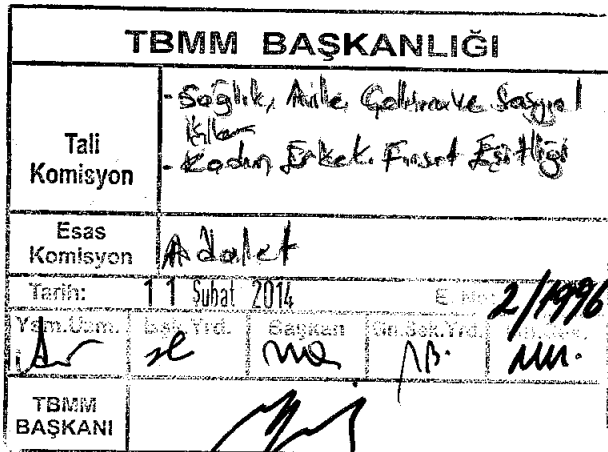 TBMM BAŞKANLIĞI
Tali Komisyon
- Sağlık, Aile, Çalışma ve Sosyal
İşler
- Kadın Erkek Fırsat Eşitliği
Esas Komisyon
Adalet
Tarih: 11 Şubat 2014 E. No: 2/1996
Yas.Uzm. Bşk.Yrd. Başkan Gn.Sek.Yrd.
TBMM BAŞKANI